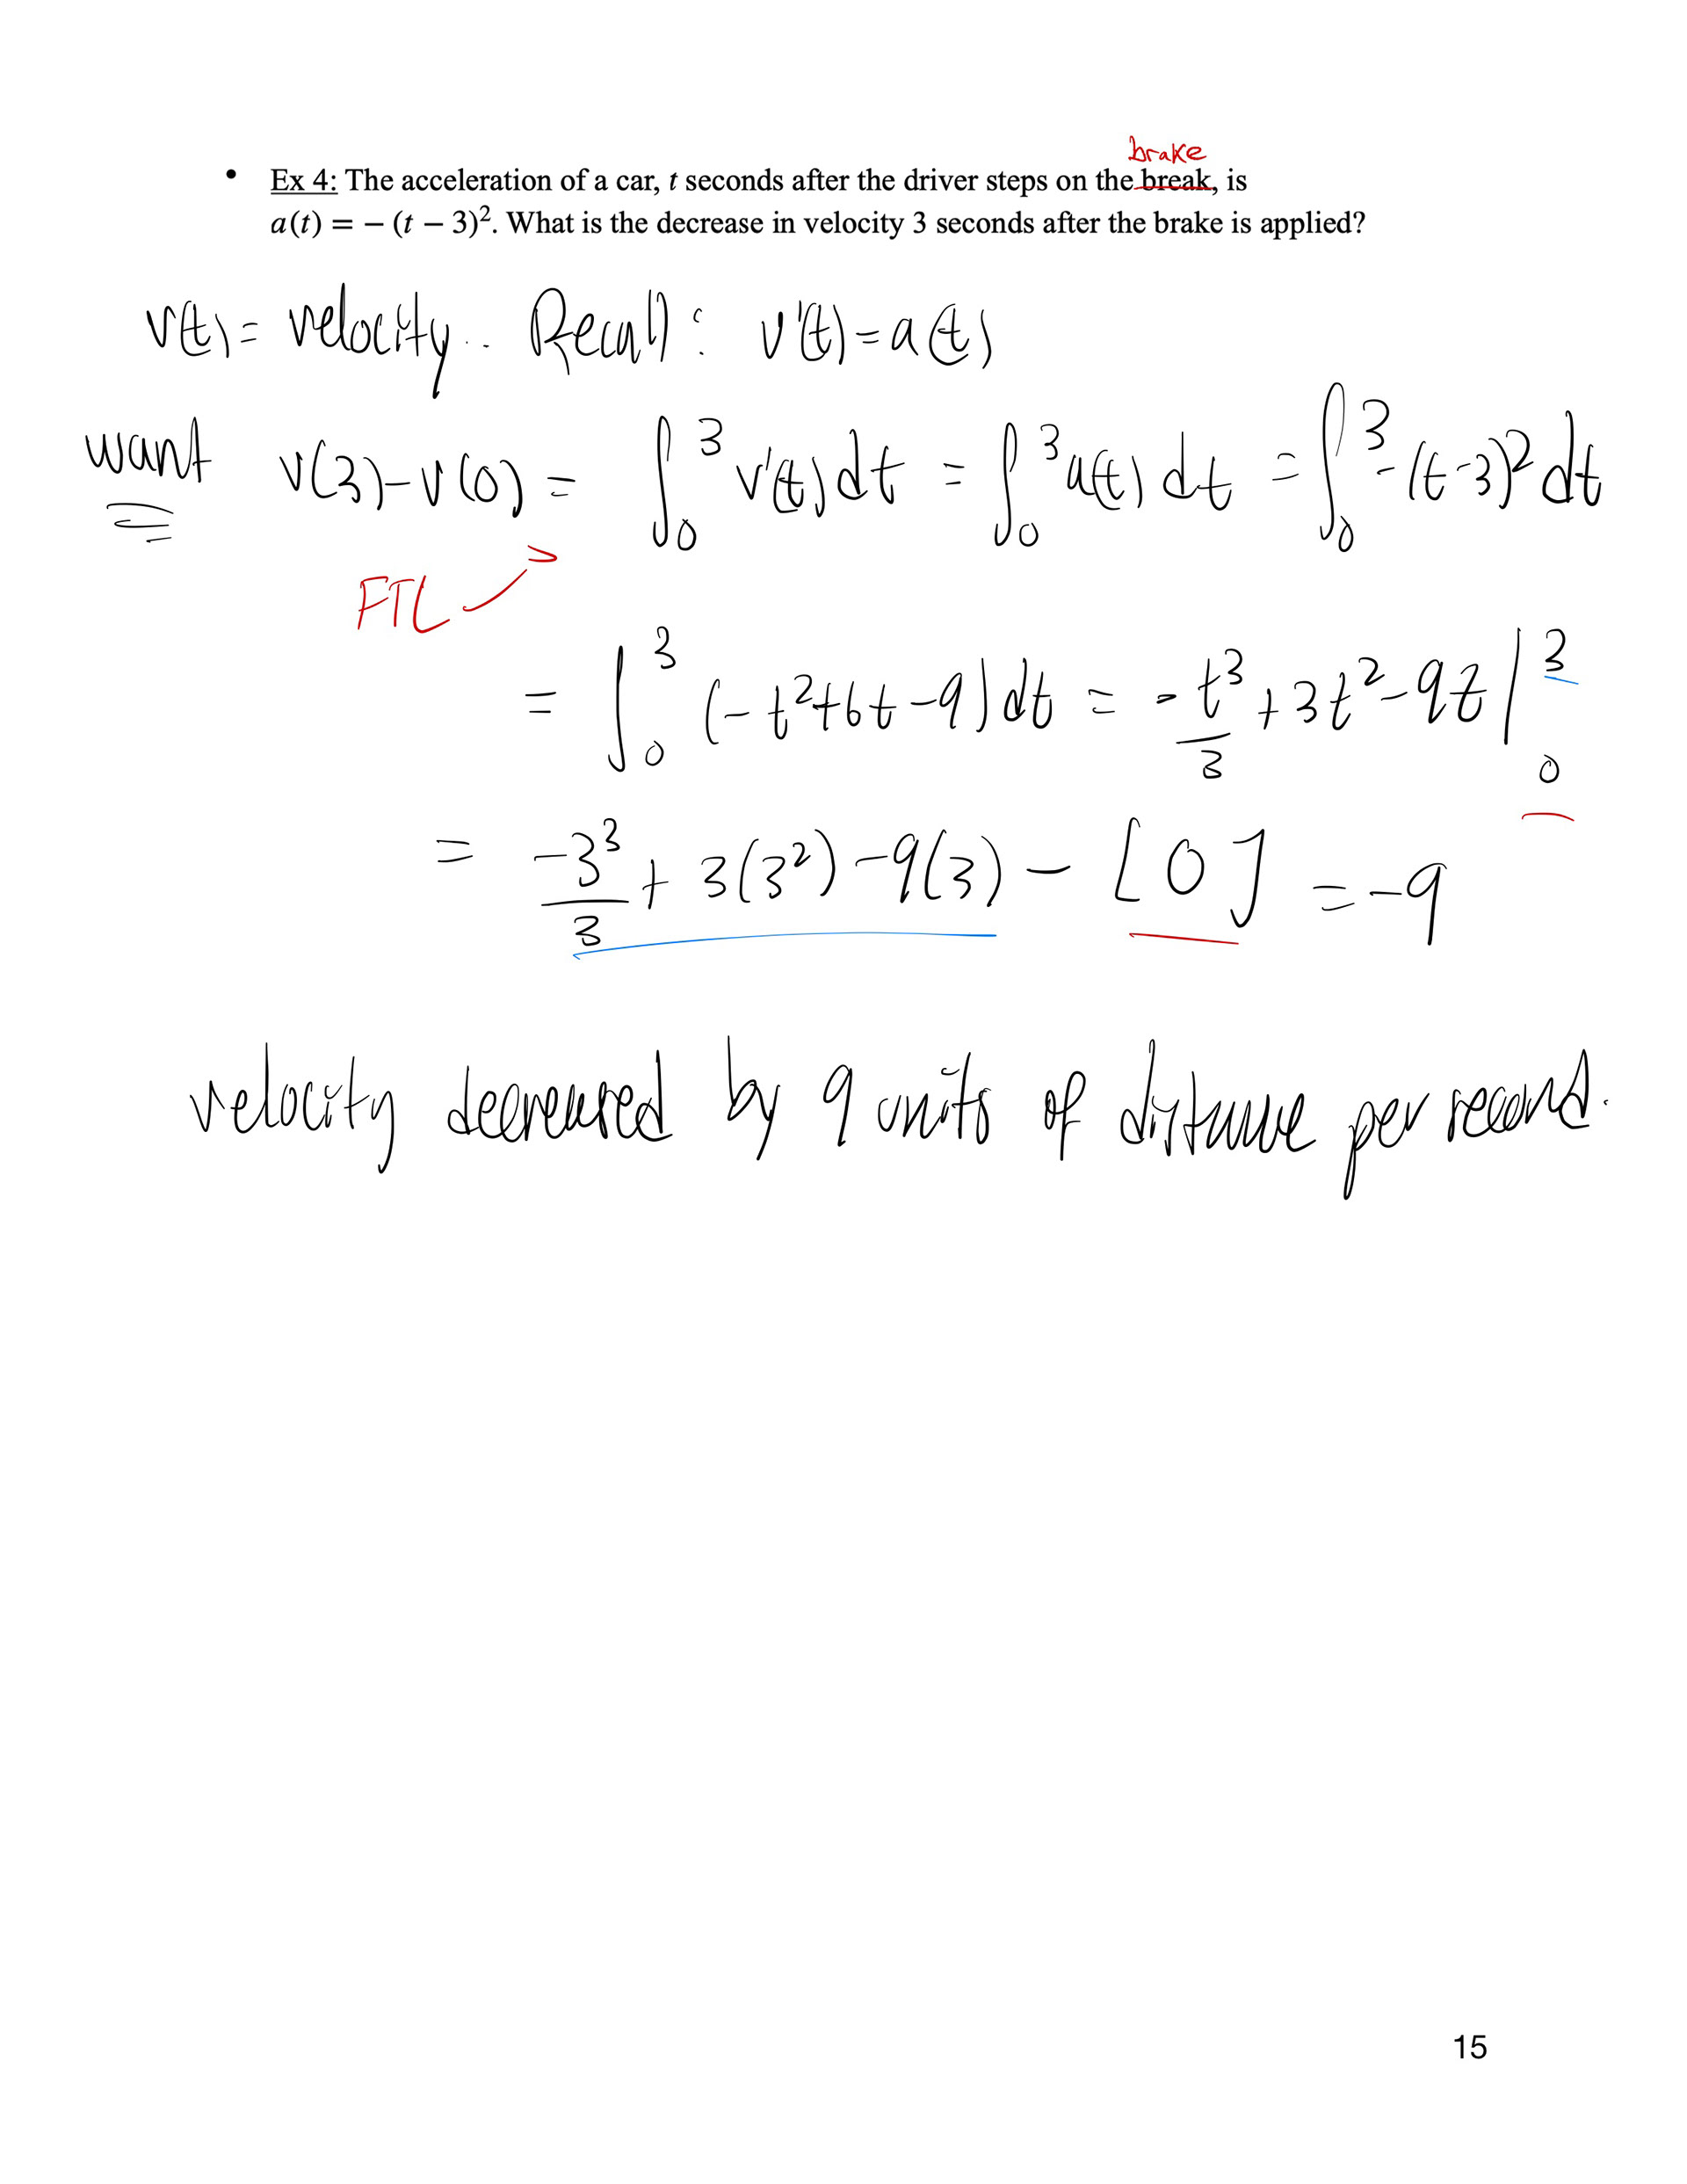 brake
• Ex 4: The acceleration of a car, t seconds after the driver steps on the break, is
a(t) = − (t − 3)². What is the decrease in velocity 3 seconds after the brake is applied?
v(t) = velocity. Recall: v'(t) = a(t)
want v(3)-v(0) = ∫₀³ v'(t) dt = ∫₀³ a(t) dt = ∫₀³ -(t-3)² dt
FTC
= ∫₀³ (-t²+6t-9) dt = -t³/3 + 3t² - 9t |₀³
= -3³/3 + 3(3²) - 9(3) - [0] = -9
velocity decreased by 9 units of distance per second.
15